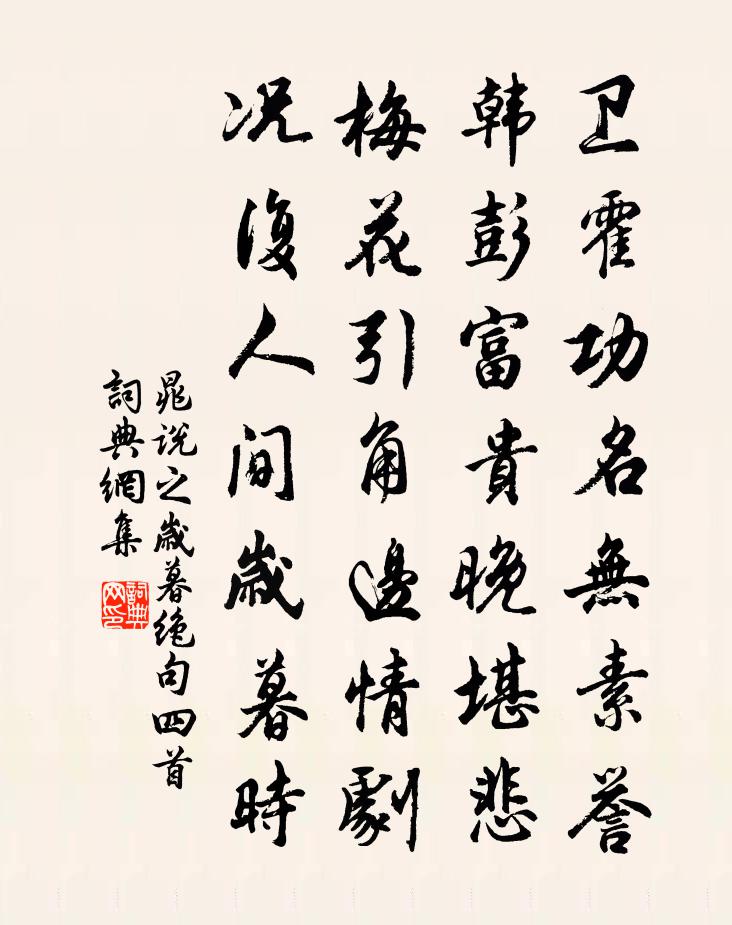 卫霍功名無素誉
韩彭富貴晚堪悲
梅花引角邊情劇
况復人间歳暮時
晁说之歳暮绝句四首
詞典網集
詞典网印